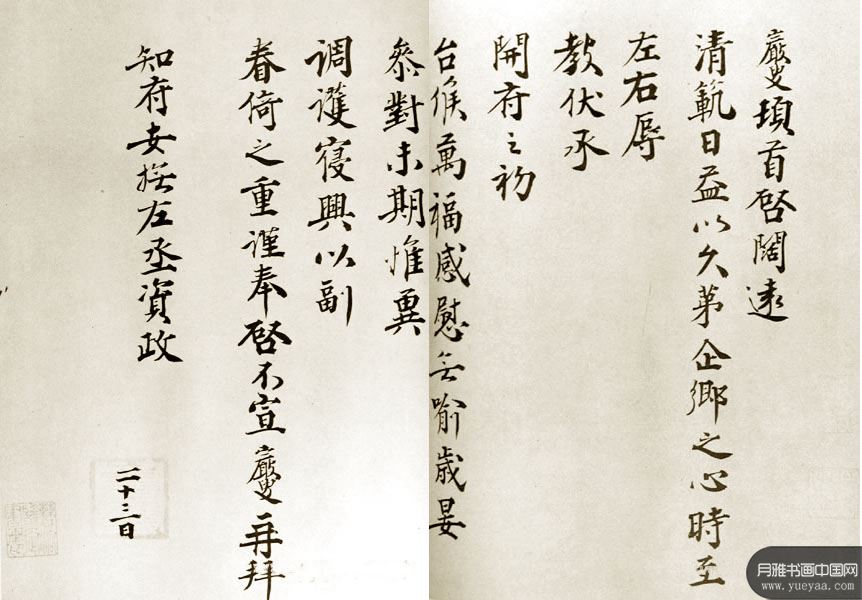 巖叟頓首啓闊遠
清範日益以久第企鄉之心時至
左右辱
教伏承
開府之初
台候萬福感慰無喻歲晏
叅對未期惟冀
調護寢興以副
眷倚之重謹奉啓不宣巖叟再拜
知府安撫左丞資政
二十三日
月雅书画中国网
www.yueyaa.com